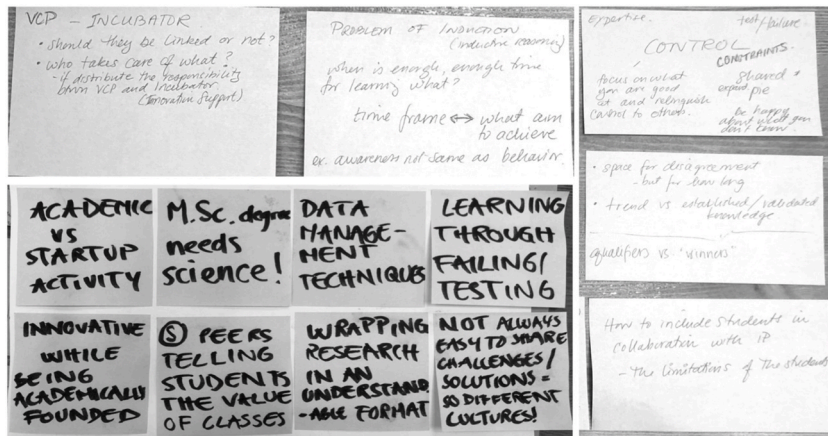 VCP - INCUBATOR
• should they be linked or not?
• who takes care of what?
- if distribute the responsibility
btwn VCP and Incubator
(Innovation Support)
PROBLEM OF INDUCTION
(inductive reasoning)
when is enough, enough time
for learning what?
time frame ↔ what aim
to achieve
ex. awareness not same as behavior.
expertise.
test/failure
CONTROL
CONSTRAINTS.
focus on what
you are good
at and relinquish
control to others.
shared
expand pie
be happy
about what you
don't know.
• space for disagreement
- but for how long
• trend vs established/validated
knowledge
qualifiers vs "winners"
How to include students in
collaboration with IP
- the limitations of the students
ACADEMIC
VS
STARTUP
ACTIVITY
M.Sc. degree
needs
science!
DATA
MANAGE-
MENT
TECHNIQUES
LEARNING
THROUGH
FAILING/
TESTING
INNOVATIVE
WHILE
BEING
ACADEMICALLY
FOUNDED
PEERS
TELLING
STUDENTS
THE VALUE
OF CLASSES
WRAPPING
RESEARCH
IN AN
UNDERSTAND
-ABLE FORMAT
NOT ALWAYS
EASY TO SHARE
CHALLENGES/
SOLUTIONS =
SO DIFFERENT
CULTURES!